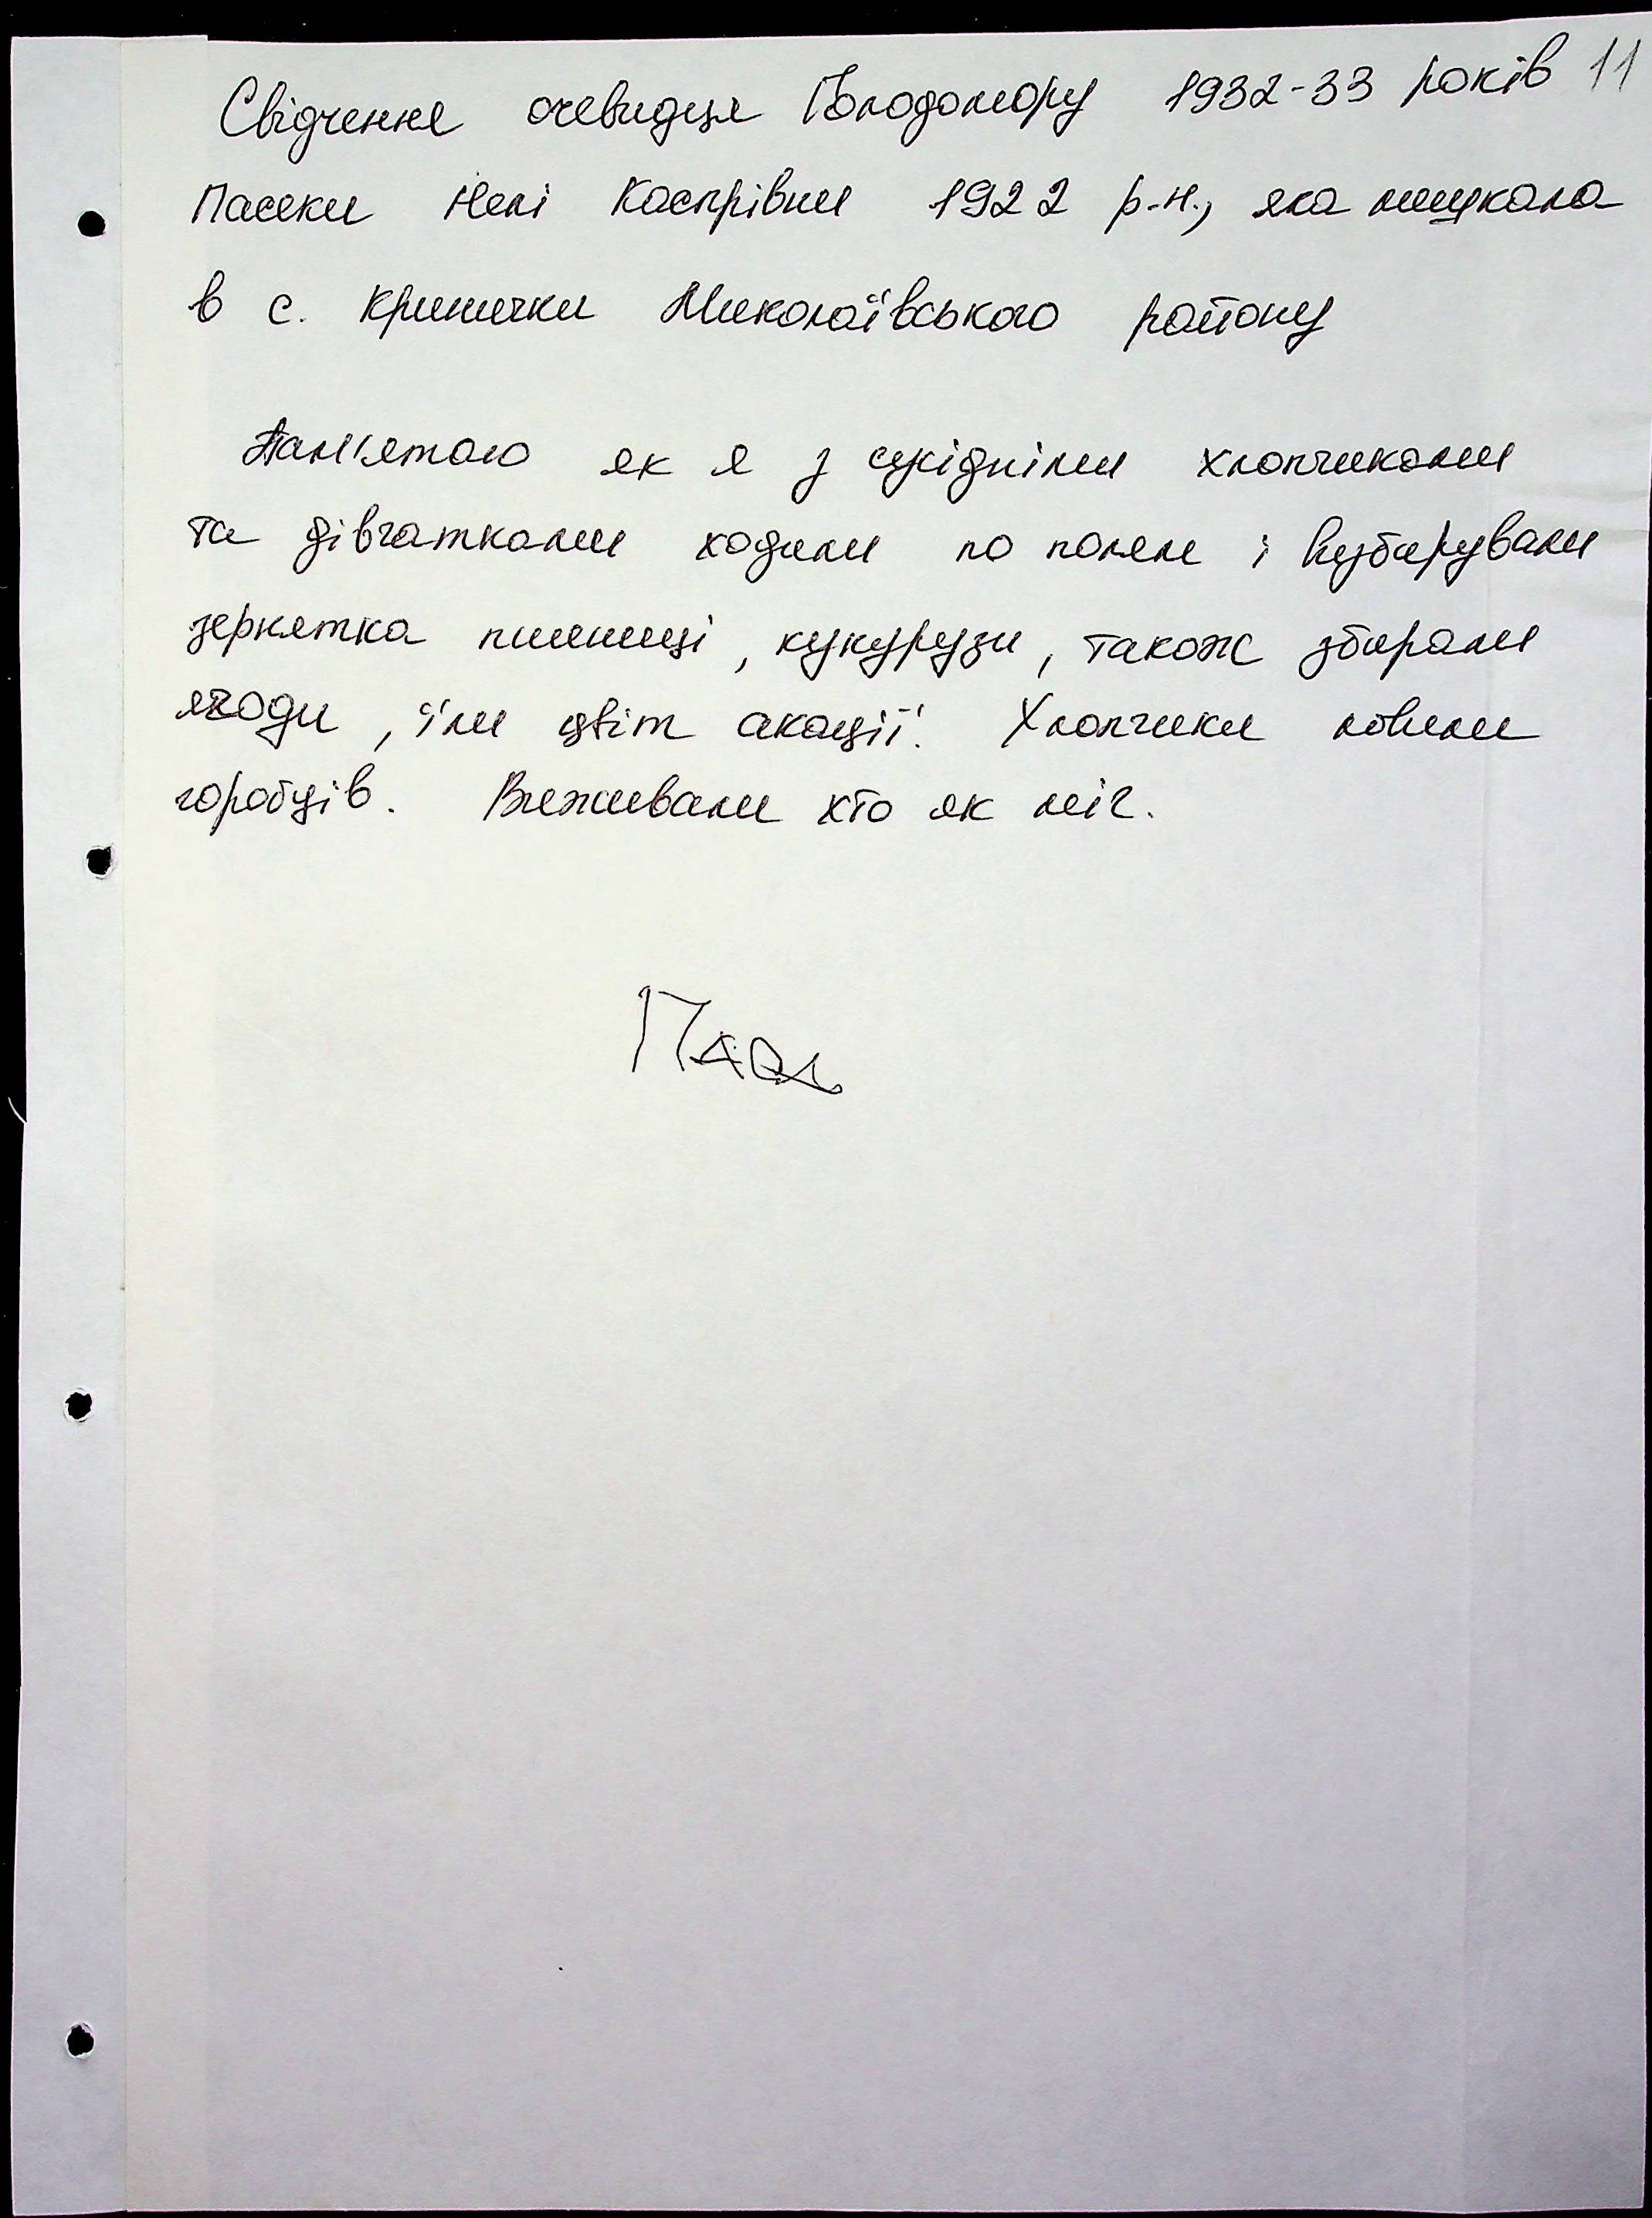 Свідчення очевидця Голодомору 1932-33 років 11
Пасеки Нелі Каспрівни 1922 р.н., яка мешкала
в с. Кринички Миколаївського району
Пам'ятаю як я з сусідніми хлопчиками
та дівчатками ходили по полям і визбирували
зернятка пшениці, кукурузи, також збирали
ягоди, їли цвіт акації. Хлопчики ловили
горобців. Виживали хто як міг.